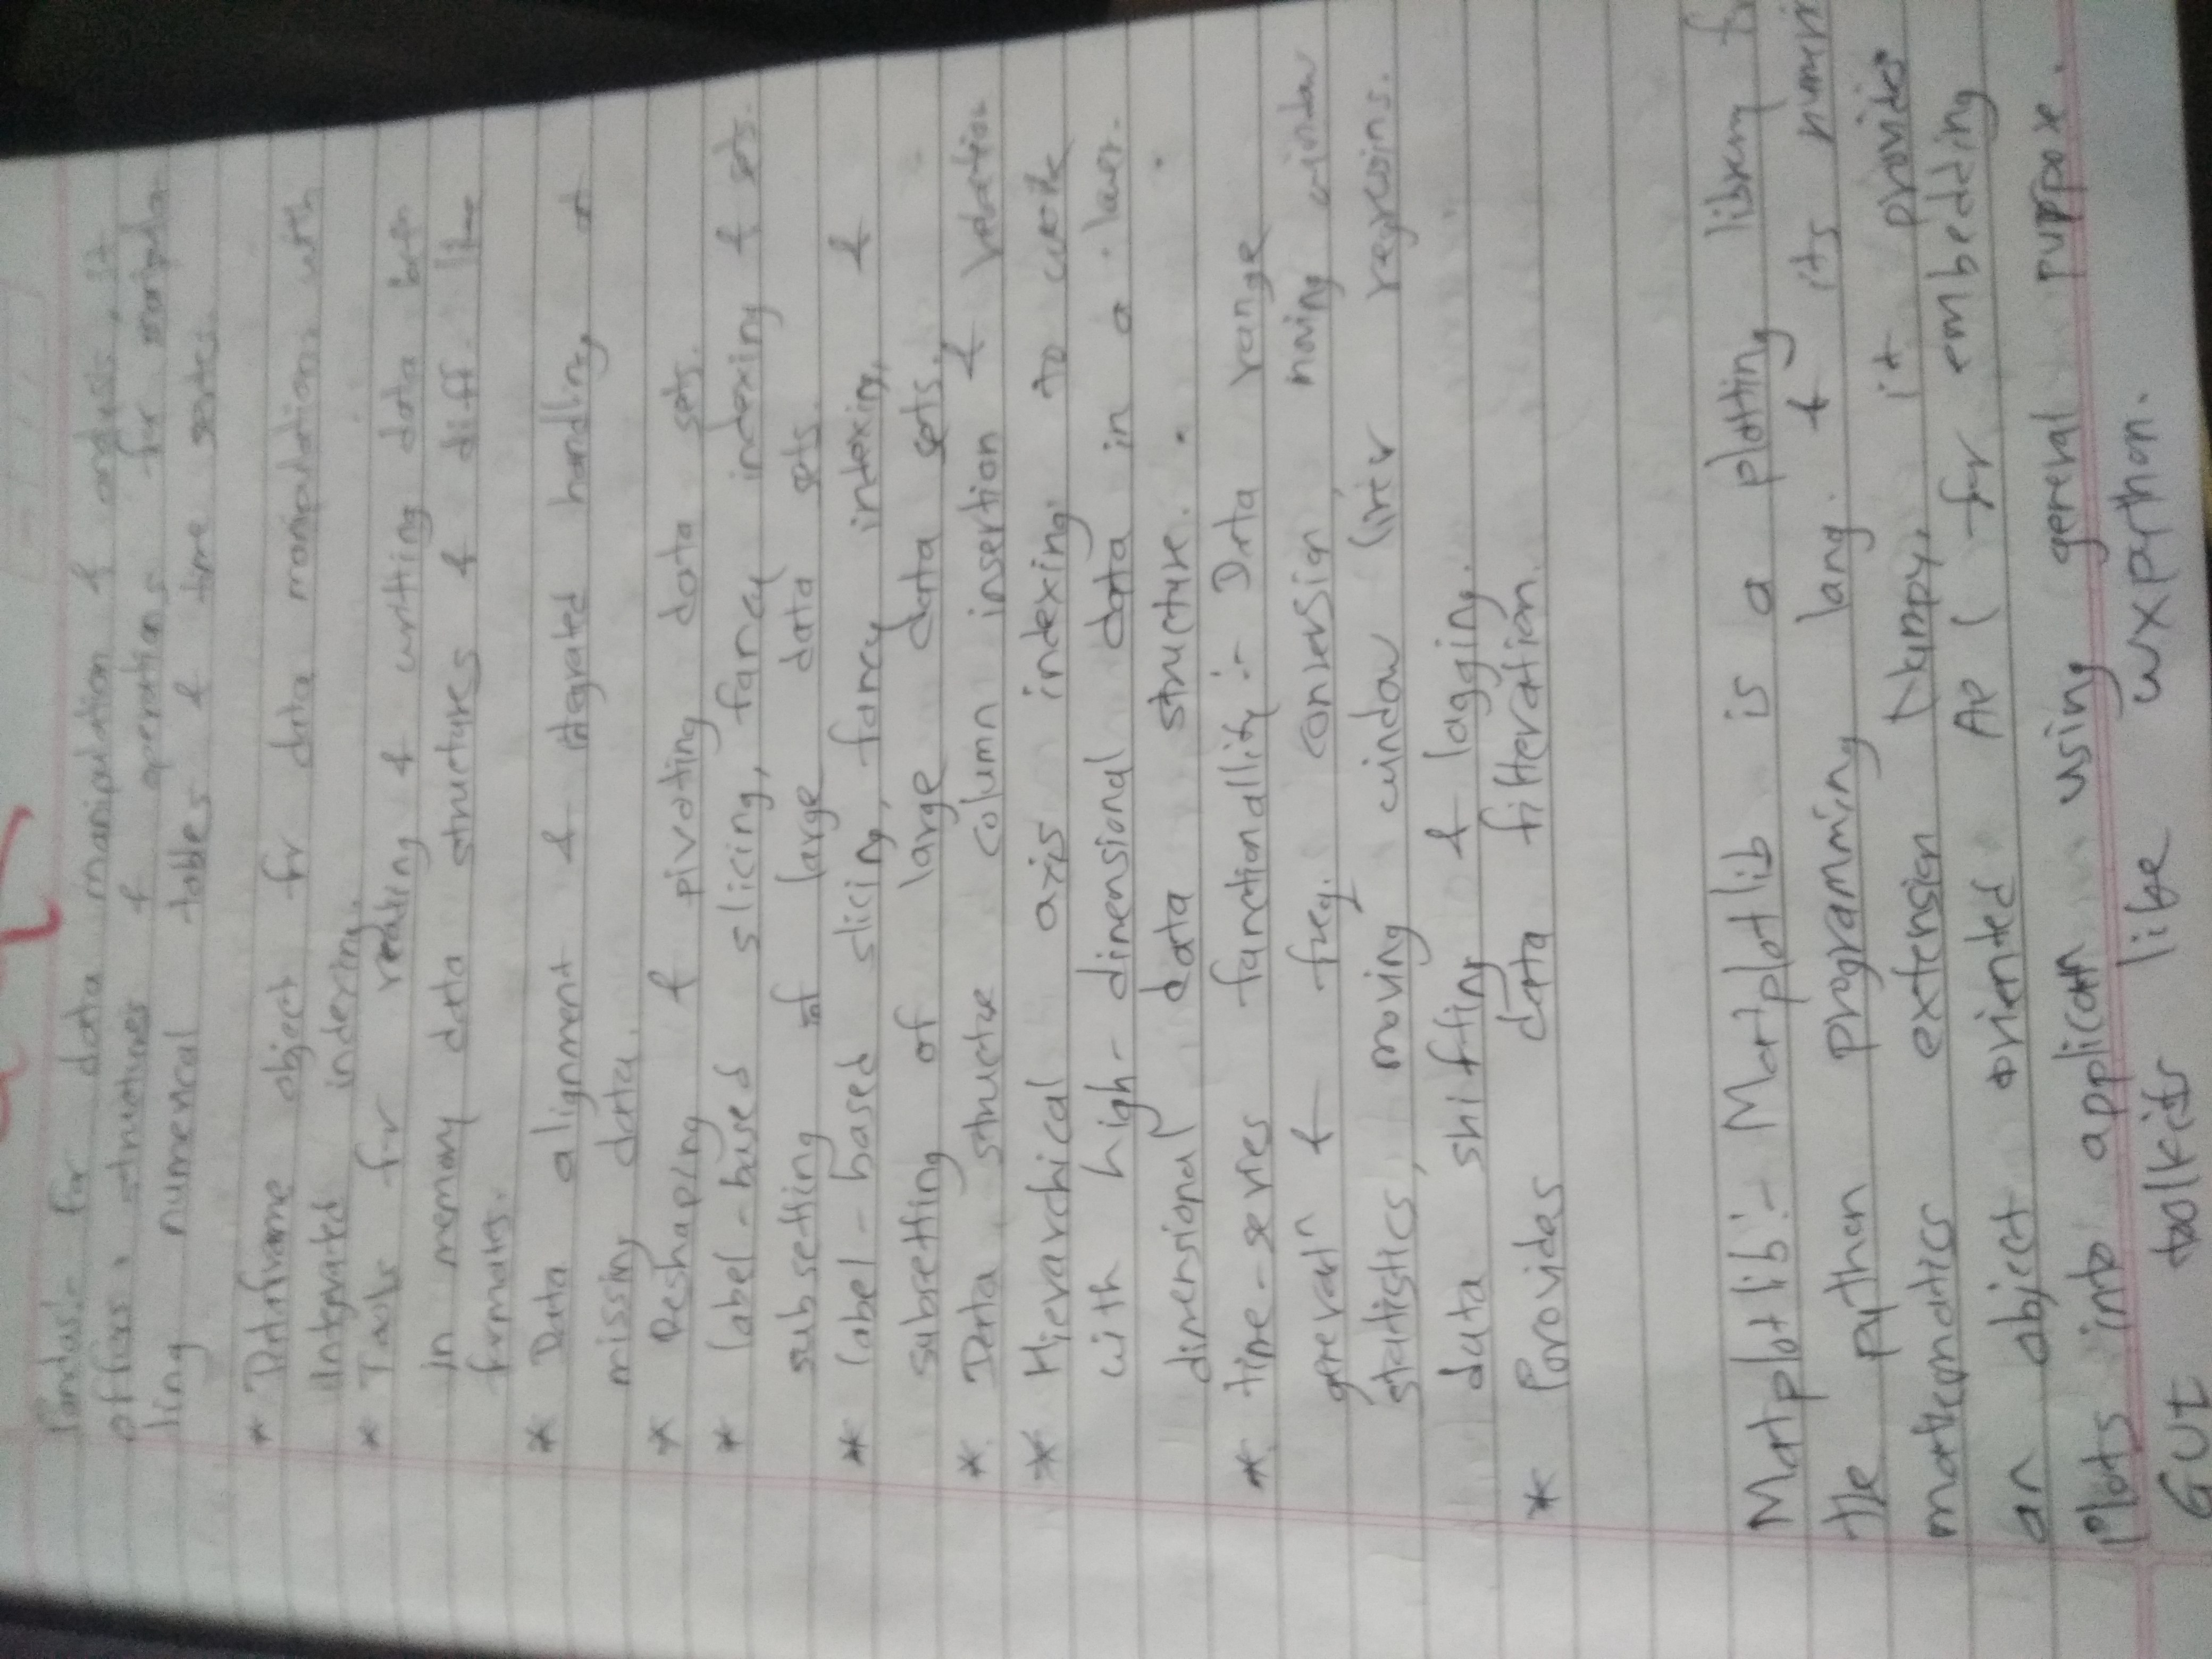 Pandas:- For data manipulation & analysis. it
offers structures & operations for manipula-
ling numerical tables & time series.
* Dataframe object for data manipulation with
integrated indexing.
* Tools for reading & writting data betn
in memory data structures & diff. file
formates.
* Data alignment & integrated handling of
missing data.
* Reshaping & pivoting data sets.
* label-based slicing, fancy indexing & sets.
subsetting of large data sets.
* label-based slicing, fancy indexing, &
subsetting of large data sets.
* Data structure column insertion &
* Hierarchical axis indexing to work
with high-dimensional data in a lower.
dimensional data structure.
* time-series functionallity:- Data range
generatn & freq. conversion moving window
statistics, moving window liner regresoins.
data shifting & lagging.
* Porovidas data filteration.
Matplotlib:- Matplotlib is a plotting library for
the python programming lang. & its numeri
mathematics extension Numpy, it provides
an object oriented API for embedding
Plots into applicatn using general puppose.
GUI toolkits like wxpython.